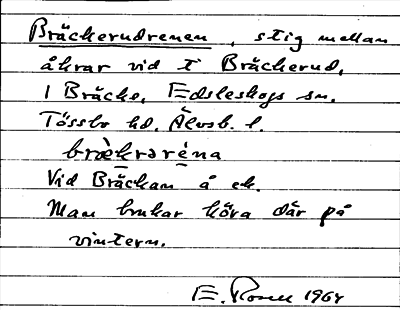 Bräckerudrenen, stig mellan
åkrar vid t Bräckerud,
1 Bräcke, Edsleskogs sn.
Tössbo hd. Älvsb. l.
brækrəréna
Vid Bräckan å ek.
Man brukar köra där på
vintern.
E. Rosell 1964